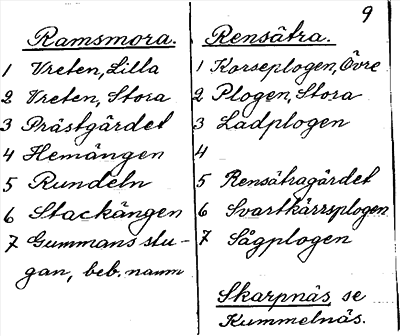 9
Ramsmora.
1 Vreten, Lilla
2 Vreten, Stora
3 Prästgärdet
4 Hemängen
5 Rundeln
6 Stackängen
7 Gummans stu-
gan, beb. namn
Rensätra.
1 Korseplogen, Övre
2 Plogen, Stora
3 Ladplogen
4
5 Rensätragärdet
6 Svartkärrsplogen
7 Sågplogen
Skarpnäs, se
Kummelnäs.